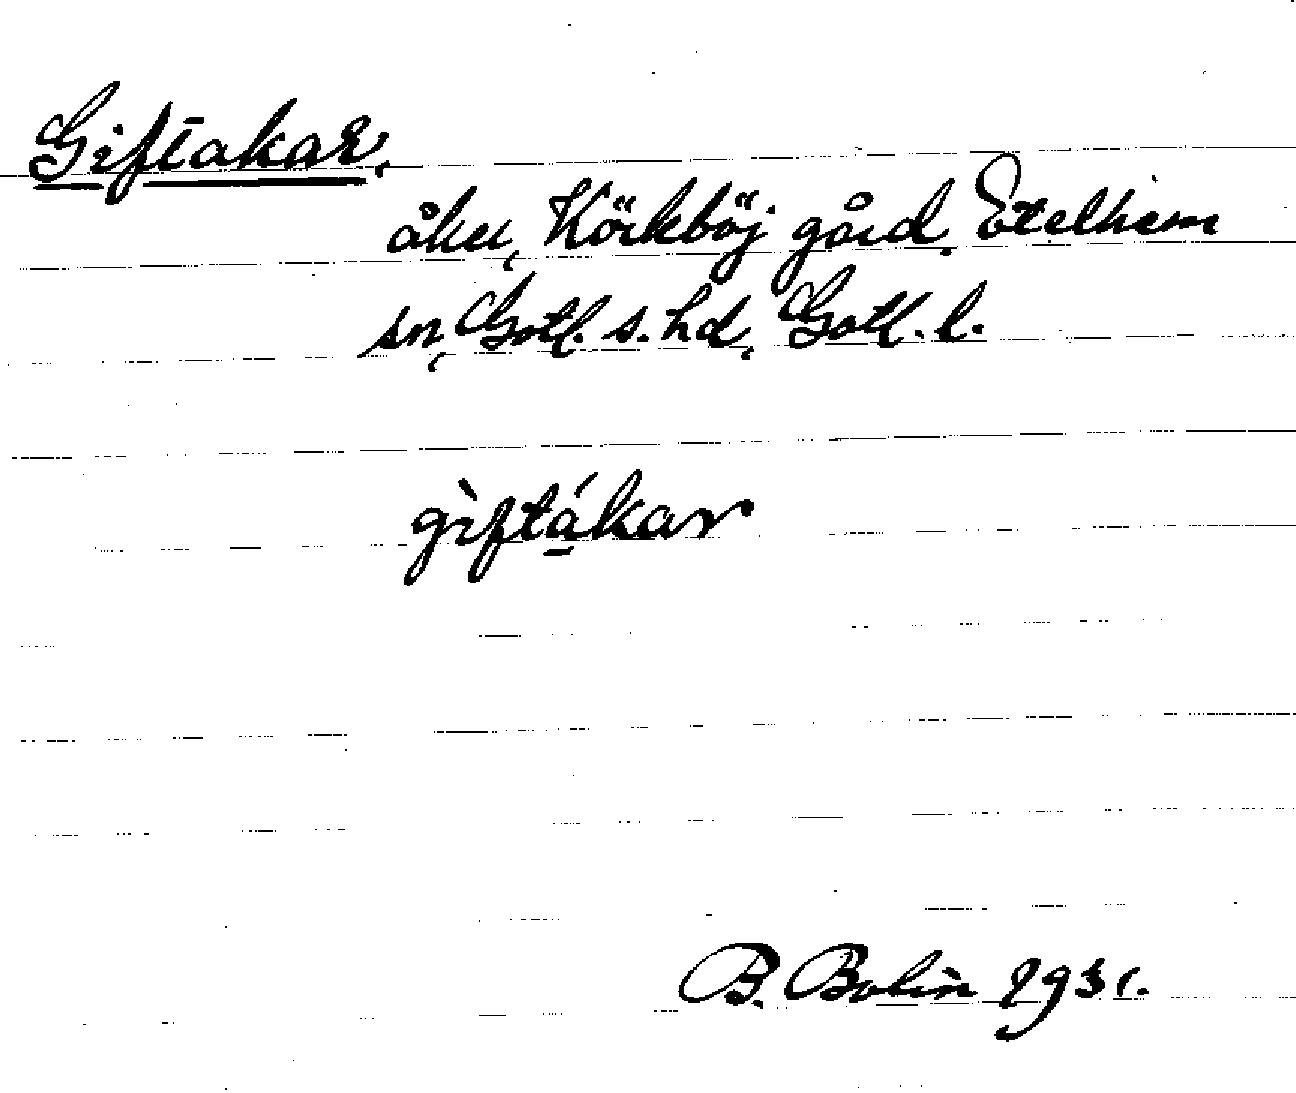 Giftakar,
åku, Körkböj gård, Etelhem
sn, Gotl. s. hd, Gotl. l.
gìftákar
B. Bolin 1931.